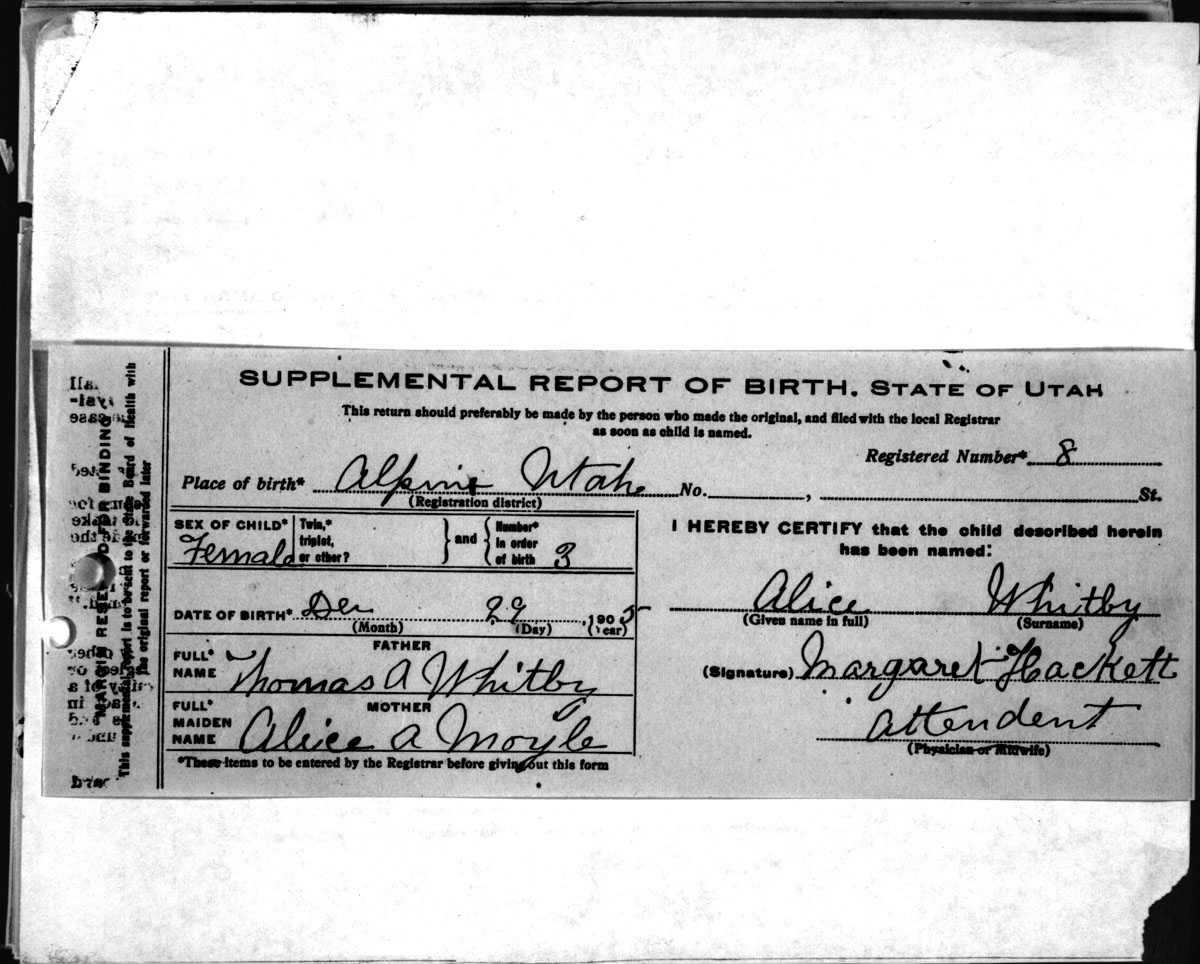 SUPPLEMENTAL REPORT OF BIRTH. STATE OF UTAH
This return should preferably be made by the person who made the original, and filed with the local Registrar
as soon as child is named.
Registered Number* 8
Place of birth* Alpine Utah No. , St.
(Registration district)
SEX OF CHILD* Female
Twin,* triplet, or other? } and { Number* in order of birth 3
DATE OF BIRTH* Dec 29, 1905
(Month) (Day) (Year)
FATHER
FULL* NAME Thomas A Whitby
MOTHER
FULL* MAIDEN NAME Alice A Moyle
*These items to be entered by the Registrar before giving out this form
I HEREBY CERTIFY that the child described herein
has been named:
Alice Whitby
(Given name in full) (Surname)
(Signature) Margaret Hackett
Attendent
(Physician or Midwife)
MARGIN RESERVED FOR BINDING
This supplemental report is to be sent to the State Board of Health with
the original report or forwarded later